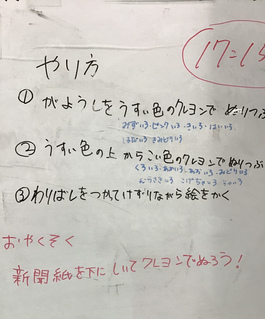 17:15
やり方
①がようしをうすい色のクレヨンで ぬりつぶ
みずいろ・ピンクいろ・きいろ・はいいろ
はだいろ・きみどりいろ
②うすい色の上からこい色のクレヨンでぬりつぶ
くろいろ・あかいろ・あおいろ・みどりいろ
むらさきいろ こげちゃいろ
③わりばしをつかてけずりながら絵をかく
おやくそく
新聞紙を下にしいてクレヨンでぬろう!